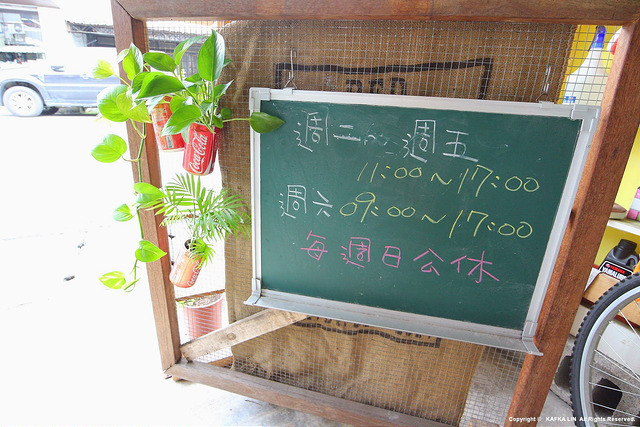 週二~週五
11:00~17:00
週六 09:00~17:00
每週日公休
Coca-Cola
YAMALUBE
Copyright © KAFKA LIN All Rights Reserved.